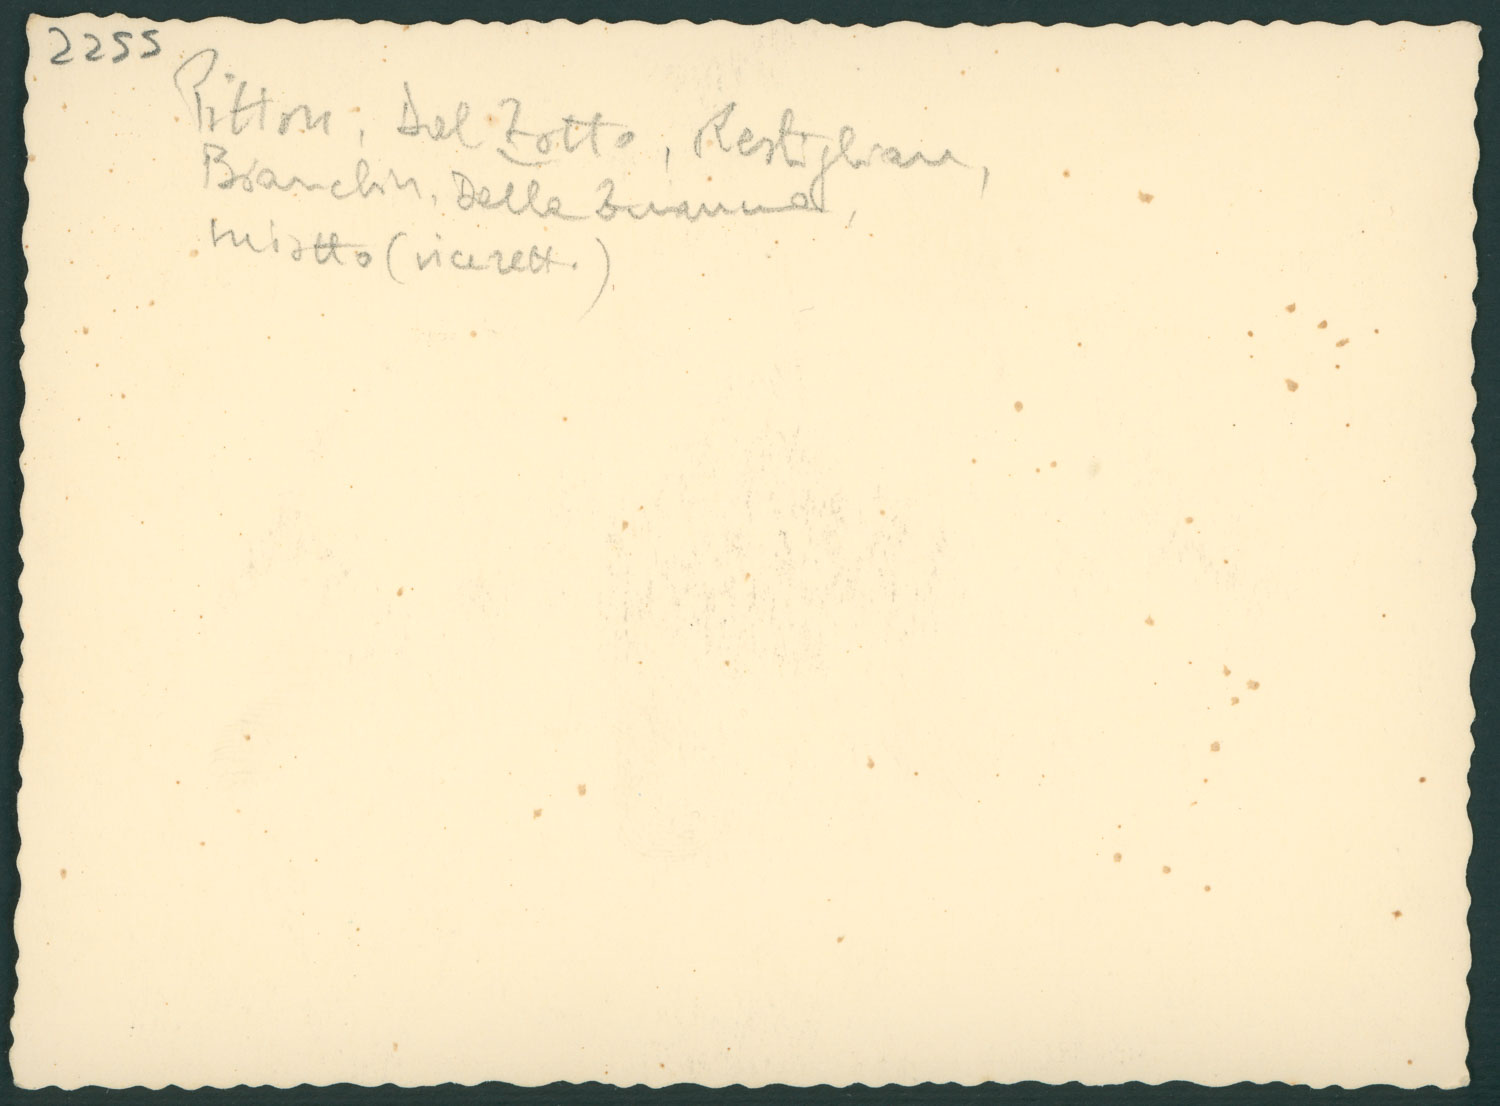 2255
Pitton, Dal Zotto, Restiglian,
Bianchin, Dalla Zuanna,
Miotto (vicerett.)